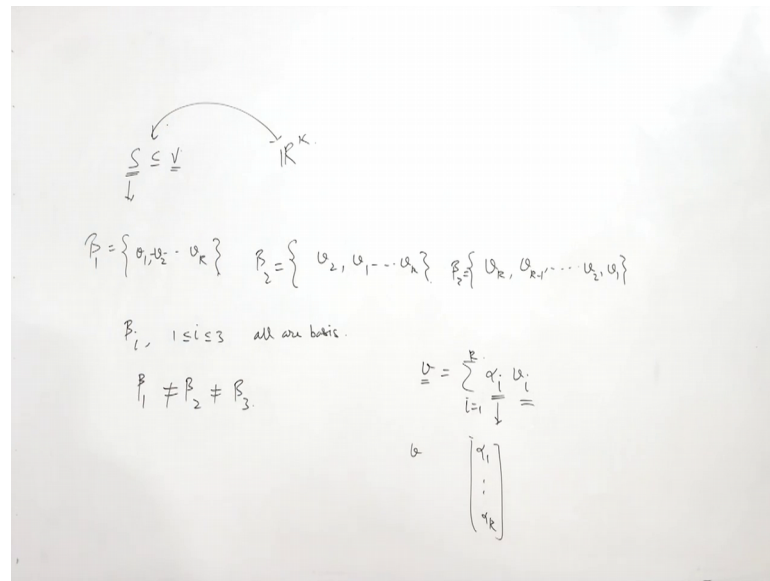 S ⊆ V ℝᴷ
↓
β₁ = {v₁, v₂ ·· v_k} β₂ = { v₂, v₁, --- v_k} β₃ = { v_k, v_{k-1}, ---- v₂, v₁}
βᵢ, 1 ≤ i ≤ 3 all are basis.
β₁ ≠ β₂ ≠ β₃.
v = ∑_{i=1}^{k} αᵢ vᵢ
↓
v [α₁ ⋮ α_k]